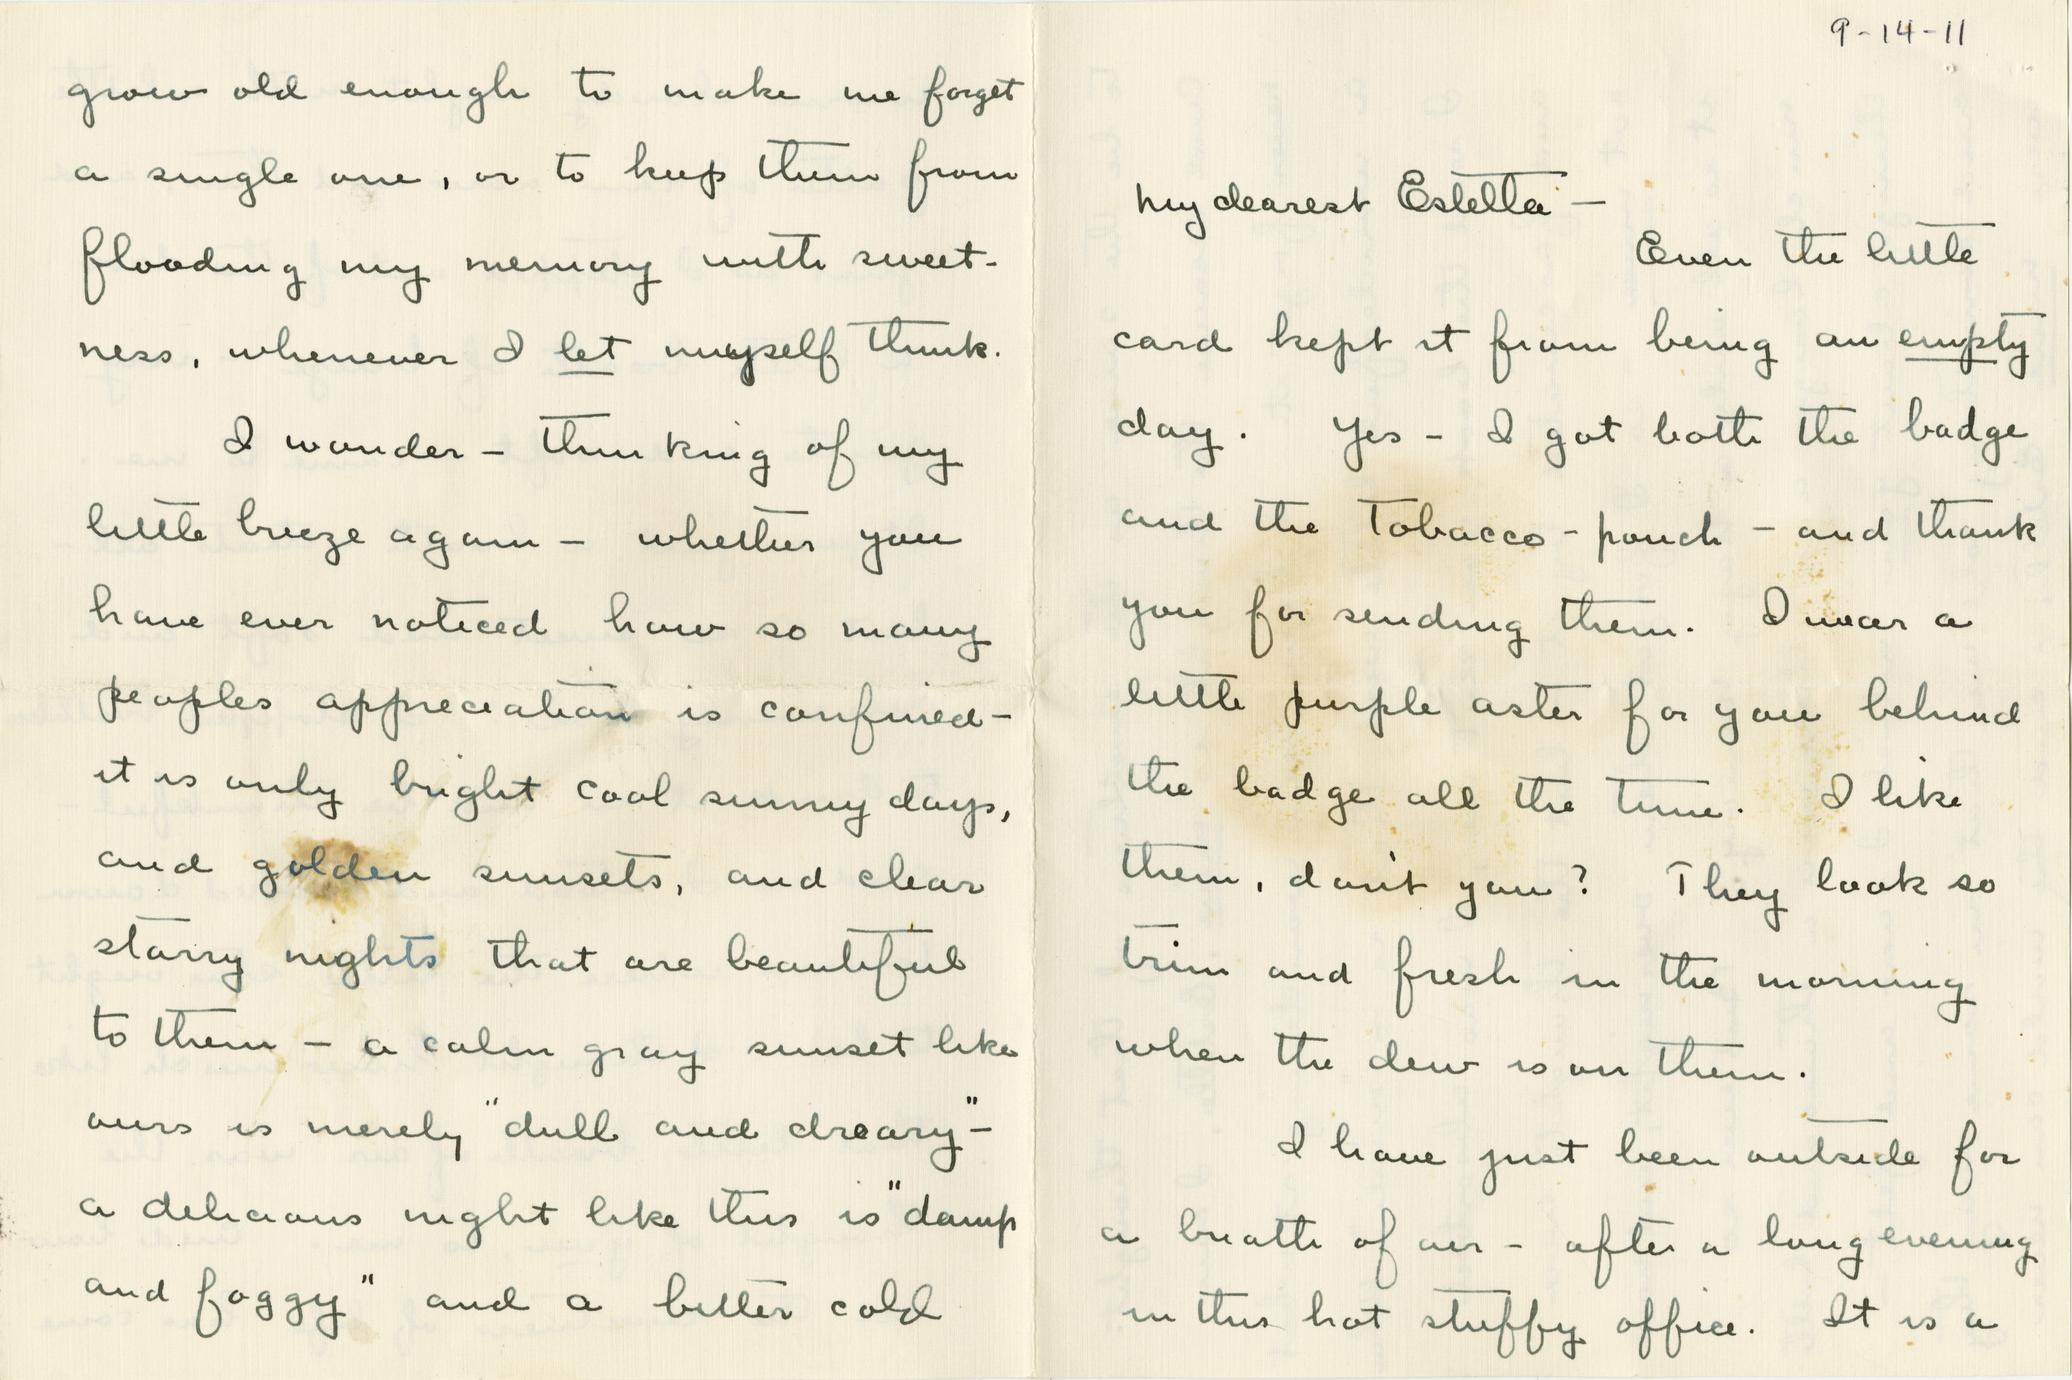 9-14-11
My dearest Estella —
Even the little
card kept it from being an empty
day. Yes - I got both the badge
and the Tobacco - pouch - and thank
you for sending them. I wear a
little purple aster for you behind
the badge all the time. I like
them, don't you? They look so
trim and fresh in the morning
when the dew is on them.
I have just been outside for
a breath of air - after a long evening
in this hot stuffy office. It is a
grow old enough to make me forget
a single one, or to keep them from
flooding my memory with sweet-
ness, whenever I let myself think.
I wonder - thinking of my
little breeze again - whether you
have ever noticed how so many
peoples appreciation is confined -
it is only bright cool sunny days,
and golden sunsets, and clear
starry nights that are beautiful
to them - a calm gray sunset like
ours is merely "dull and dreary" -
a delicious night like this is "damp
and foggy" and a bitter cold